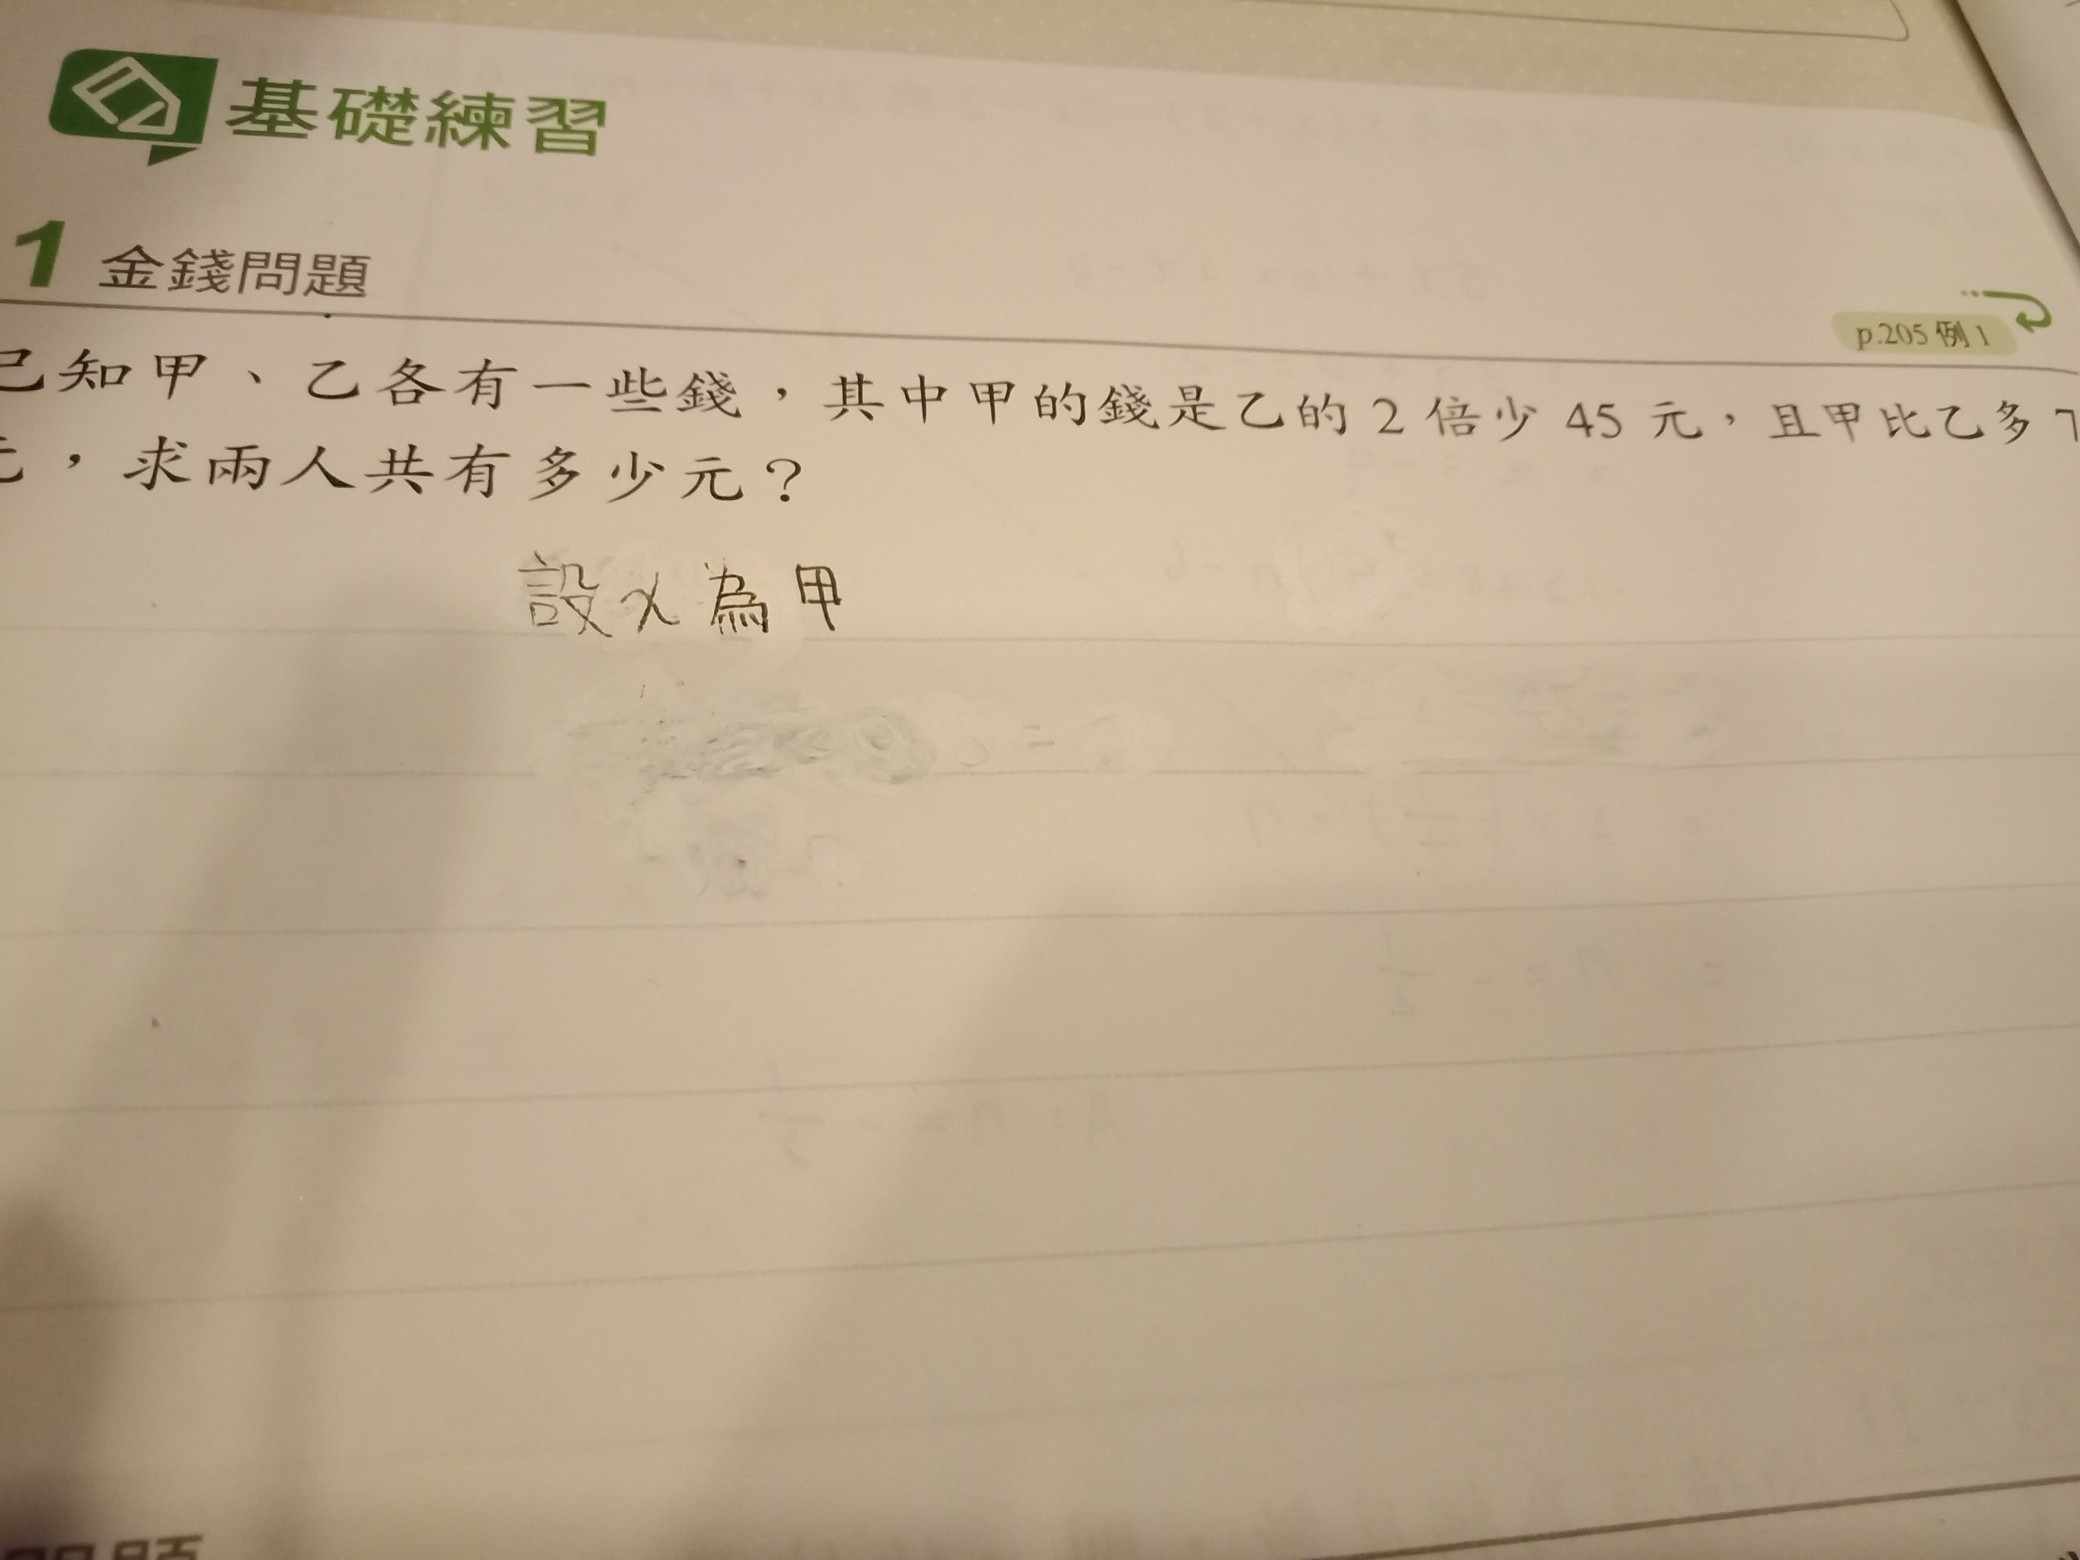 基礎練習
1 金錢問題
p.205 例1
已知甲、乙各有一些錢，其中甲的錢是乙的 2 倍少 45 元，且甲比乙多 7
元，求兩人共有多少元？
設 x 為甲
問題